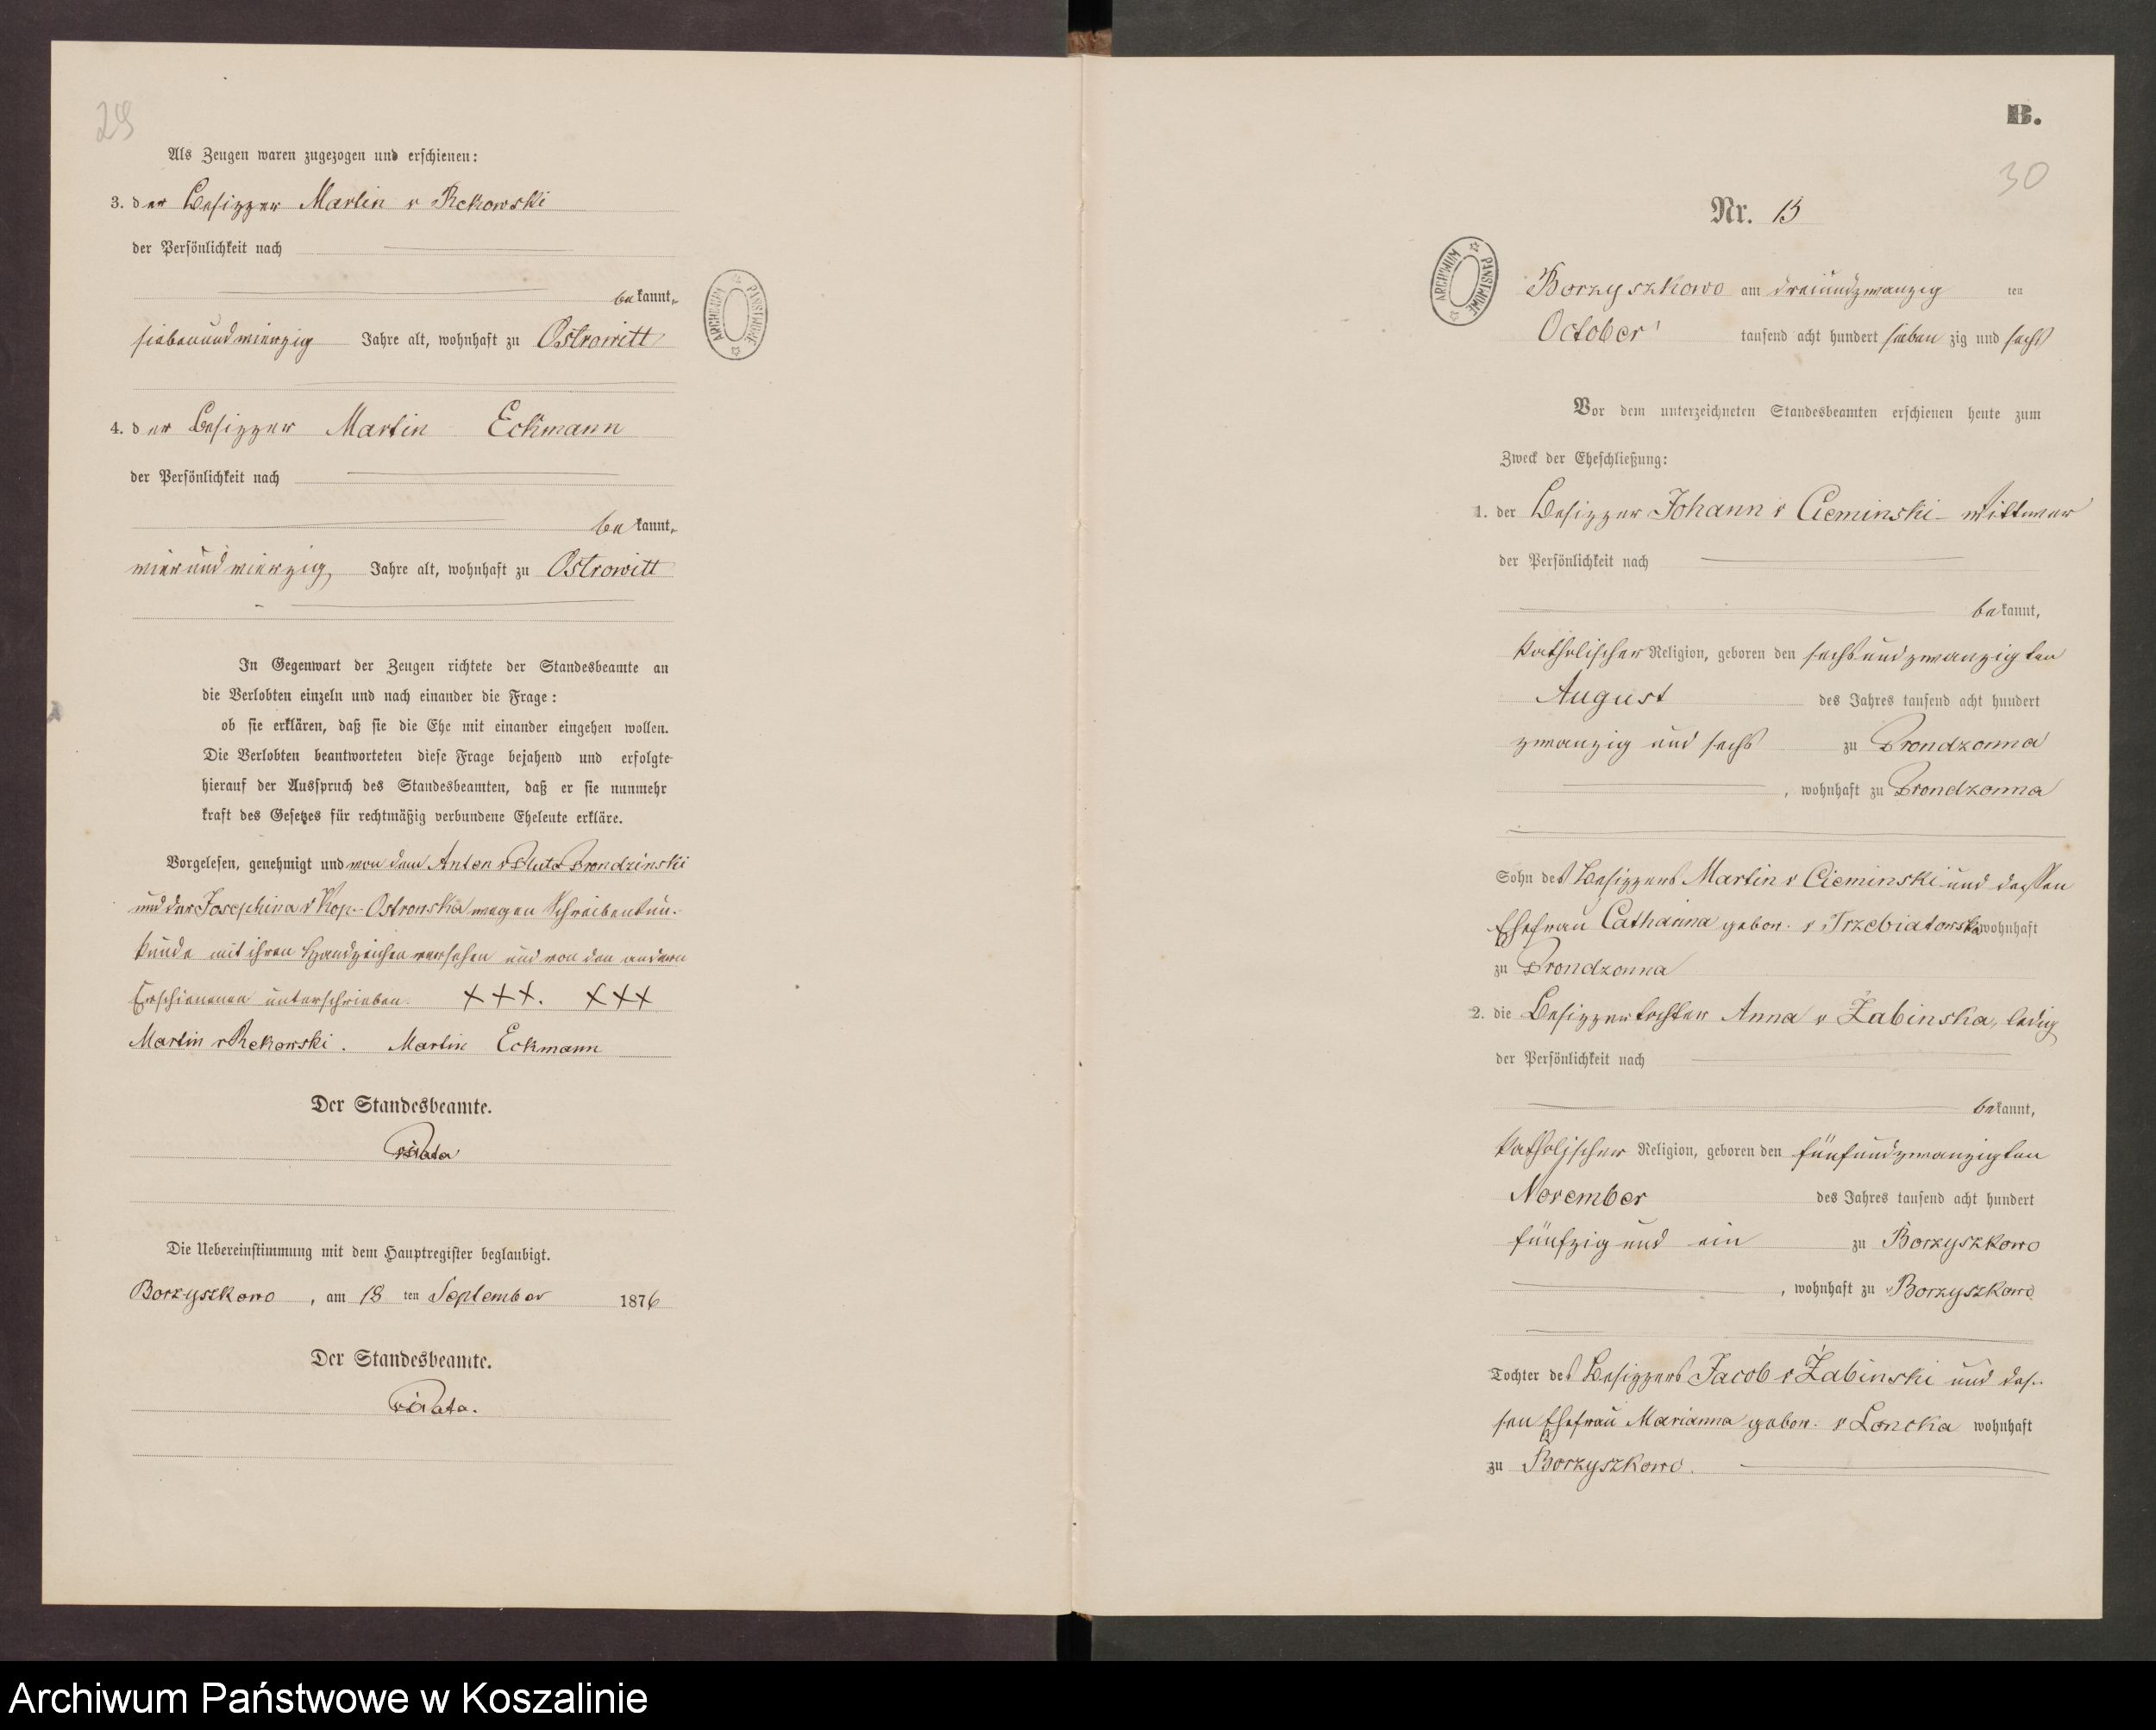 29
Als Zeugen waren zugezogen und erschienen:
3. der Besizzer Martin v Rekowski
der Persönlichkeit nach
bekannt,
siebenundvierzig Jahre alt, wohnhaft zu Ostrowitt
4. der Besizzer Martin Eckmann
der Persönlichkeit nach
bekannt,
vierundvierzig Jahre alt, wohnhaft zu Ostrowitt
In Gegenwart der Zeugen richtete der Standesbeamte an
die Verlobten einzeln und nach einander die Frage:
ob sie erklären, daß sie die Ehe mit einander eingehen wollen.
Die Verlobten beantworteten diese Frage bejahend und erfolgte
hierauf der Ausspruch des Standesbeamten, daß er sie nunmehr
kraft des Gesetzes für rechtmäßig verbundene Eheleute erkläre.
Vorgelesen, genehmigt und von dem Anton v Pluto Prondzinski
und der Josephina v Kop-Ostrowska wegen Schreibensun-
kunde mit ihren Handzeichen versehen und von den andern
Erschienenen unterschrieben. +++. +++
Martin v Rekowski. Martin Eckmann
Der Standesbeamte.
Die Uebereinstimmung mit dem Hauptregister beglaubigt.
Borzyszkowo, am 18 ten September 1876
Der Standesbeamte.
B.
30
Nr. 13
ARCHIWUM PAŃSTWOWE
Borzyszkowo am dreiundzwanzig ten
October tausend acht hundert sieben zig und sechs
Vor dem unterzeichneten Standesbeamten erschienen heute zum
Zweck der Eheschließung:
1. der Besizzer Johann v Cieminski - Wittwer
der Persönlichkeit nach
bekannt,
katholischer Religion, geboren den sechsundzwanzigten
August des Jahres tausend acht hundert
zwanzig und sechs zu Prondzonna
, wohnhaft zu Prondzonna
Sohn des Besizzers Martin v Cieminski und dessen
Ehefrau Catharina gebor. v Trzebiatowska wohnhaft
zu Prondzonna
2. die Besizzertochter Anna v Żabinska, ledig
der Persönlichkeit nach
bekannt,
katholischer Religion, geboren den fünfundzwanzigten
November des Jahres tausend acht hundert
fünfzig und ein zu Borzyszkowo
, wohnhaft zu Borzyszkowo
Tochter des Besizzers Jacob v Żabinski und des-
sen Ehefrau Marianna gebor. v Loncka wohnhaft
zu Borzyszkowo.
ARCHIWUM PAŃSTWOWE
Archiwum Państwowe w Koszalinie